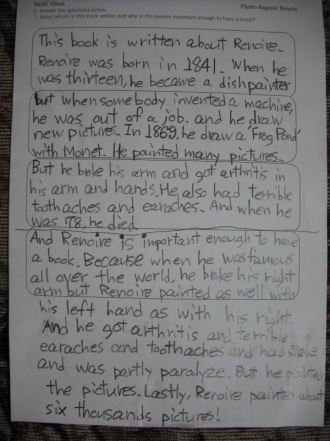 Smart About
Pierre-Auguste Renoire
II. Answer the questions below.
1. About whom is this book written and why is this person important enough to have a book?
This book is written about Renoire.
Renoire was born in 1841. When he
was thirteen, he became a dishpainter
but when somebody invented a machine,
he was out of a job. and he draw
new pictures. In 1869, he draw a 'Frog Pond'
with Monet. He painted many pictures.
But he broke his arm and got arthritis in
his arm and hands. He also had terrible
toothaches and earaches. And when he
was 78, he died.
And Renoire is important enough to have
a book. Because when he was famous
all over the world, he broke his right
arm but Renoire painted as well with
his left hand as with his right.
And he got arthritis and terrible
earaches and toothaches and had
and was partly paralyze. But he painted
the pictures. Lastly, Renoire painted about
six thousands pictures!